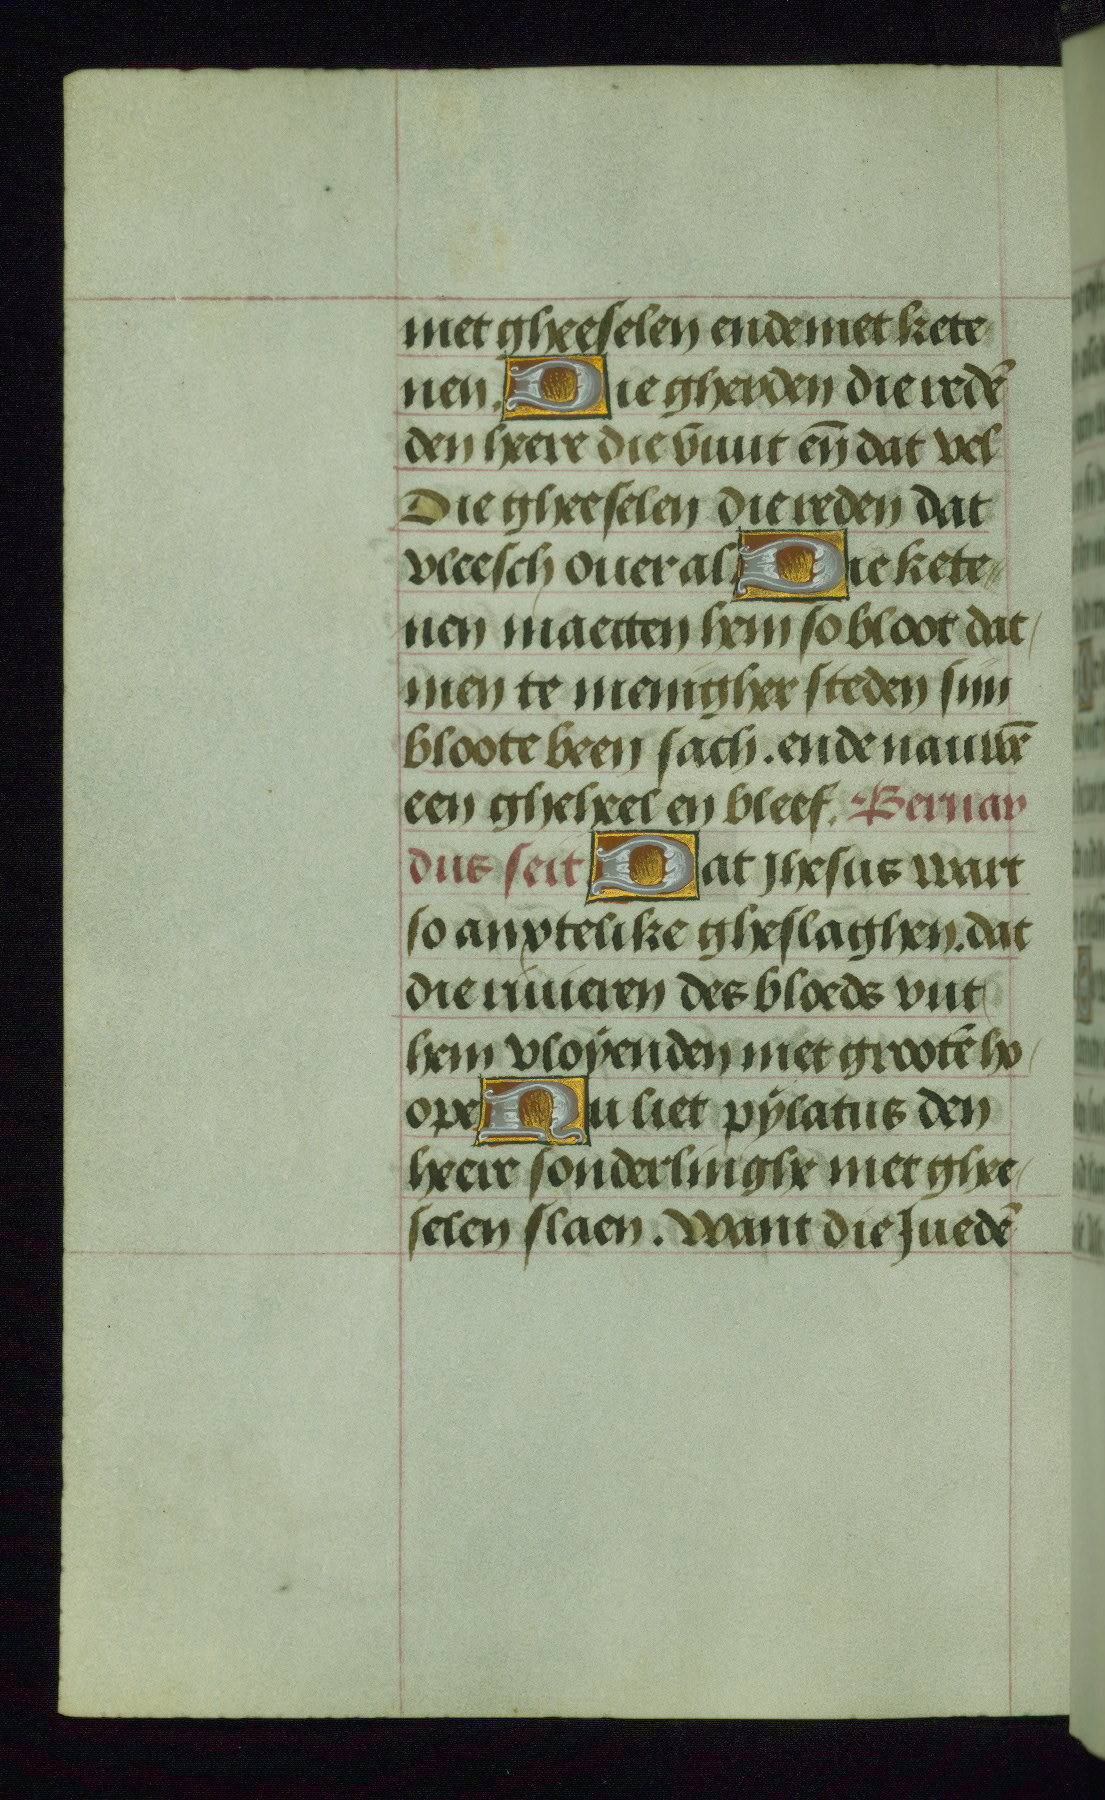 met gheeselen ende met kete
nen. Die gherden die redē
den heere die vuut en̄ dat vel
Die gheeselen die reden dat
vleesch ouer al Die kete
nen maecten hem so bloot dat
men te menigher steden siin
bloote been sach. ende nauwē
een gheheel en bleef. Bernar
dus seit Dat Jhesus wart
so anxtelike gheslaghen. dat
die riuieren des bloeds vut
hem vloÿenden met grootē ho
ope Nu liet pÿlatus den
heere sonderlinghe met ghee
selen slaen. Want die Juedē